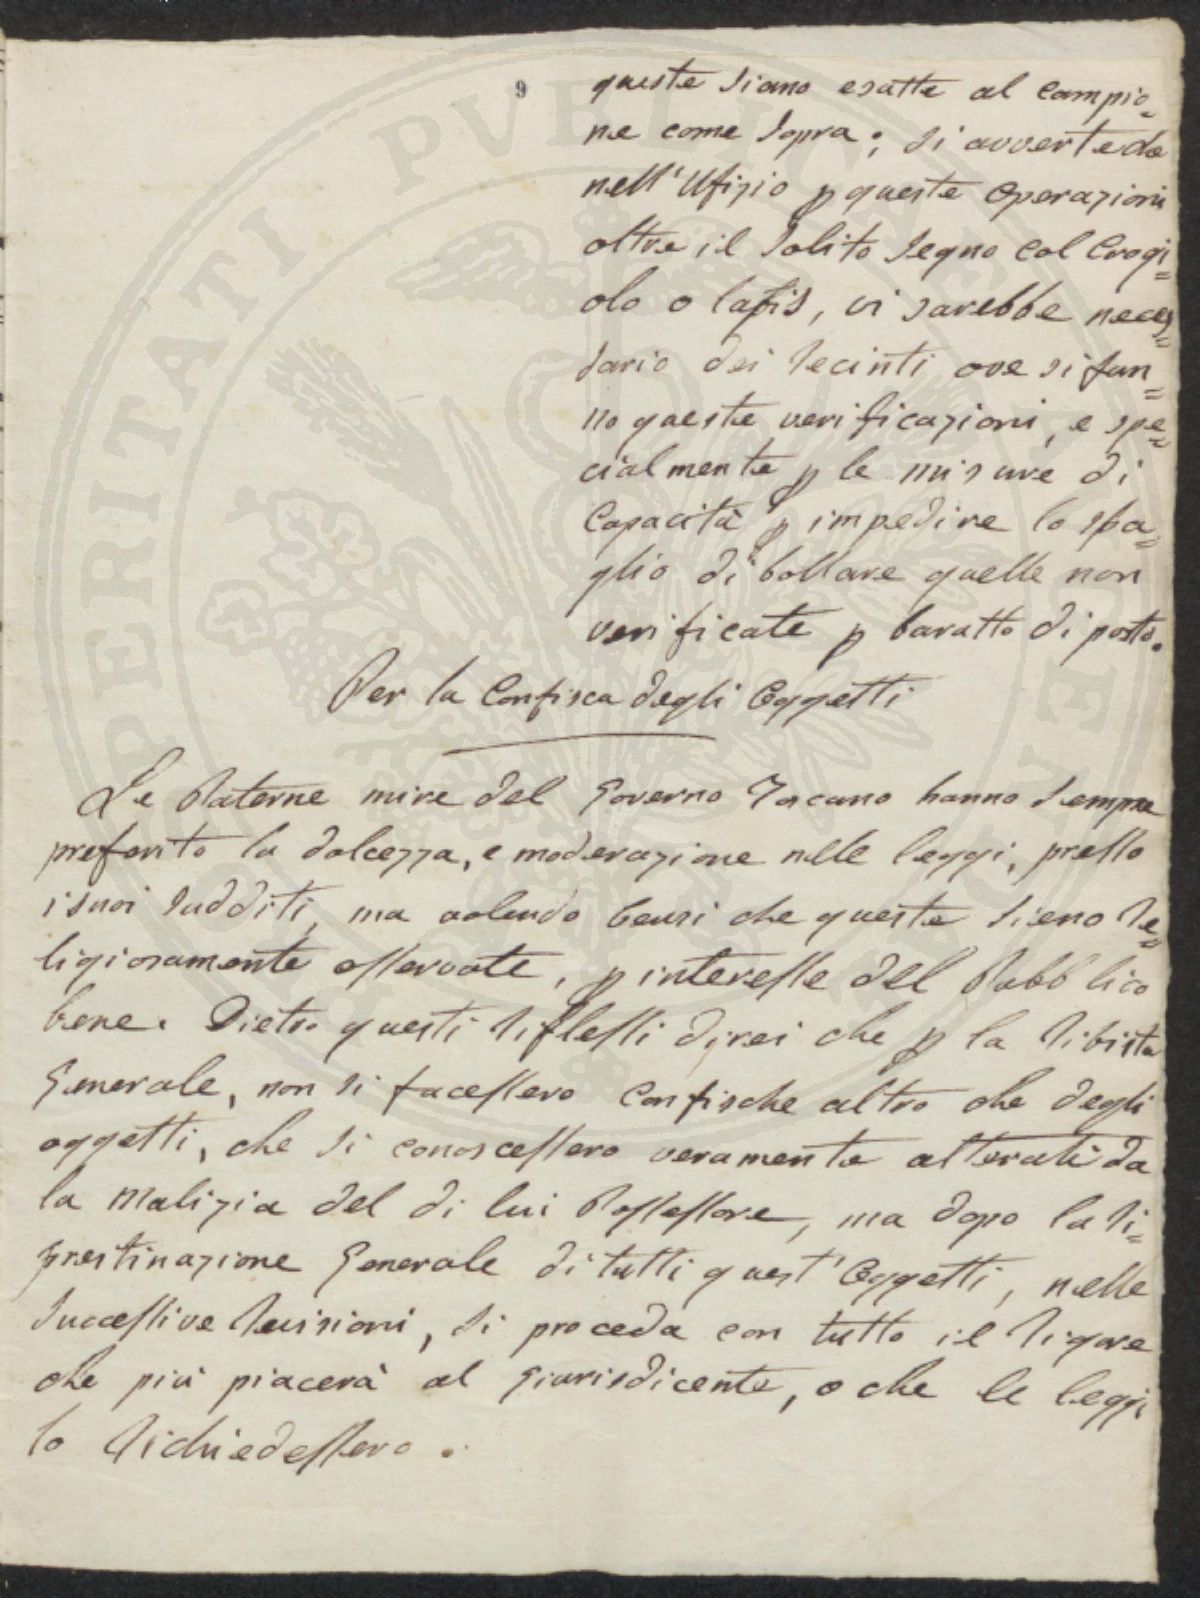 9
queste siano esatte al campio=
ne come sopra; si avverte che
nell'Ufizio p queste Operazioni
oltre il solito segno col Crogi=
olo o lapis, vi sarebbe neces=
sario dei recinti ove si fan=
no queste verificazioni, e spe=
cialmente p le misure di
Capacità p impedire lo sba=
glio di bollare quelle non
verificate p baratto di posto.
Per la Confisca degli Oggetti
Le Paterne mire del Governo Toscano hanno sempre
preferito la dolcezza, e moderazione nelle leggi, presso
i suoi sudditi, ma volendo bensi che queste sieno re=
ligiosamente osservate, p interesse del Pubblico
bene. Dietro questi riflessi direi che p la ribista
Generale, non si facessero Confische altro che degli
oggetti, che si conoscessero veramente alterati da
la Malizia del di lui Possessore, ma dopo la ri=
prestinazione Generale di tutti quest'Oggetti, nelle
successive revisioni, si proceda con tutto il rigore
che più piacerà al Giurisdicente, o che le leggi
lo richiedessero.
PERITATI PVBLICAE